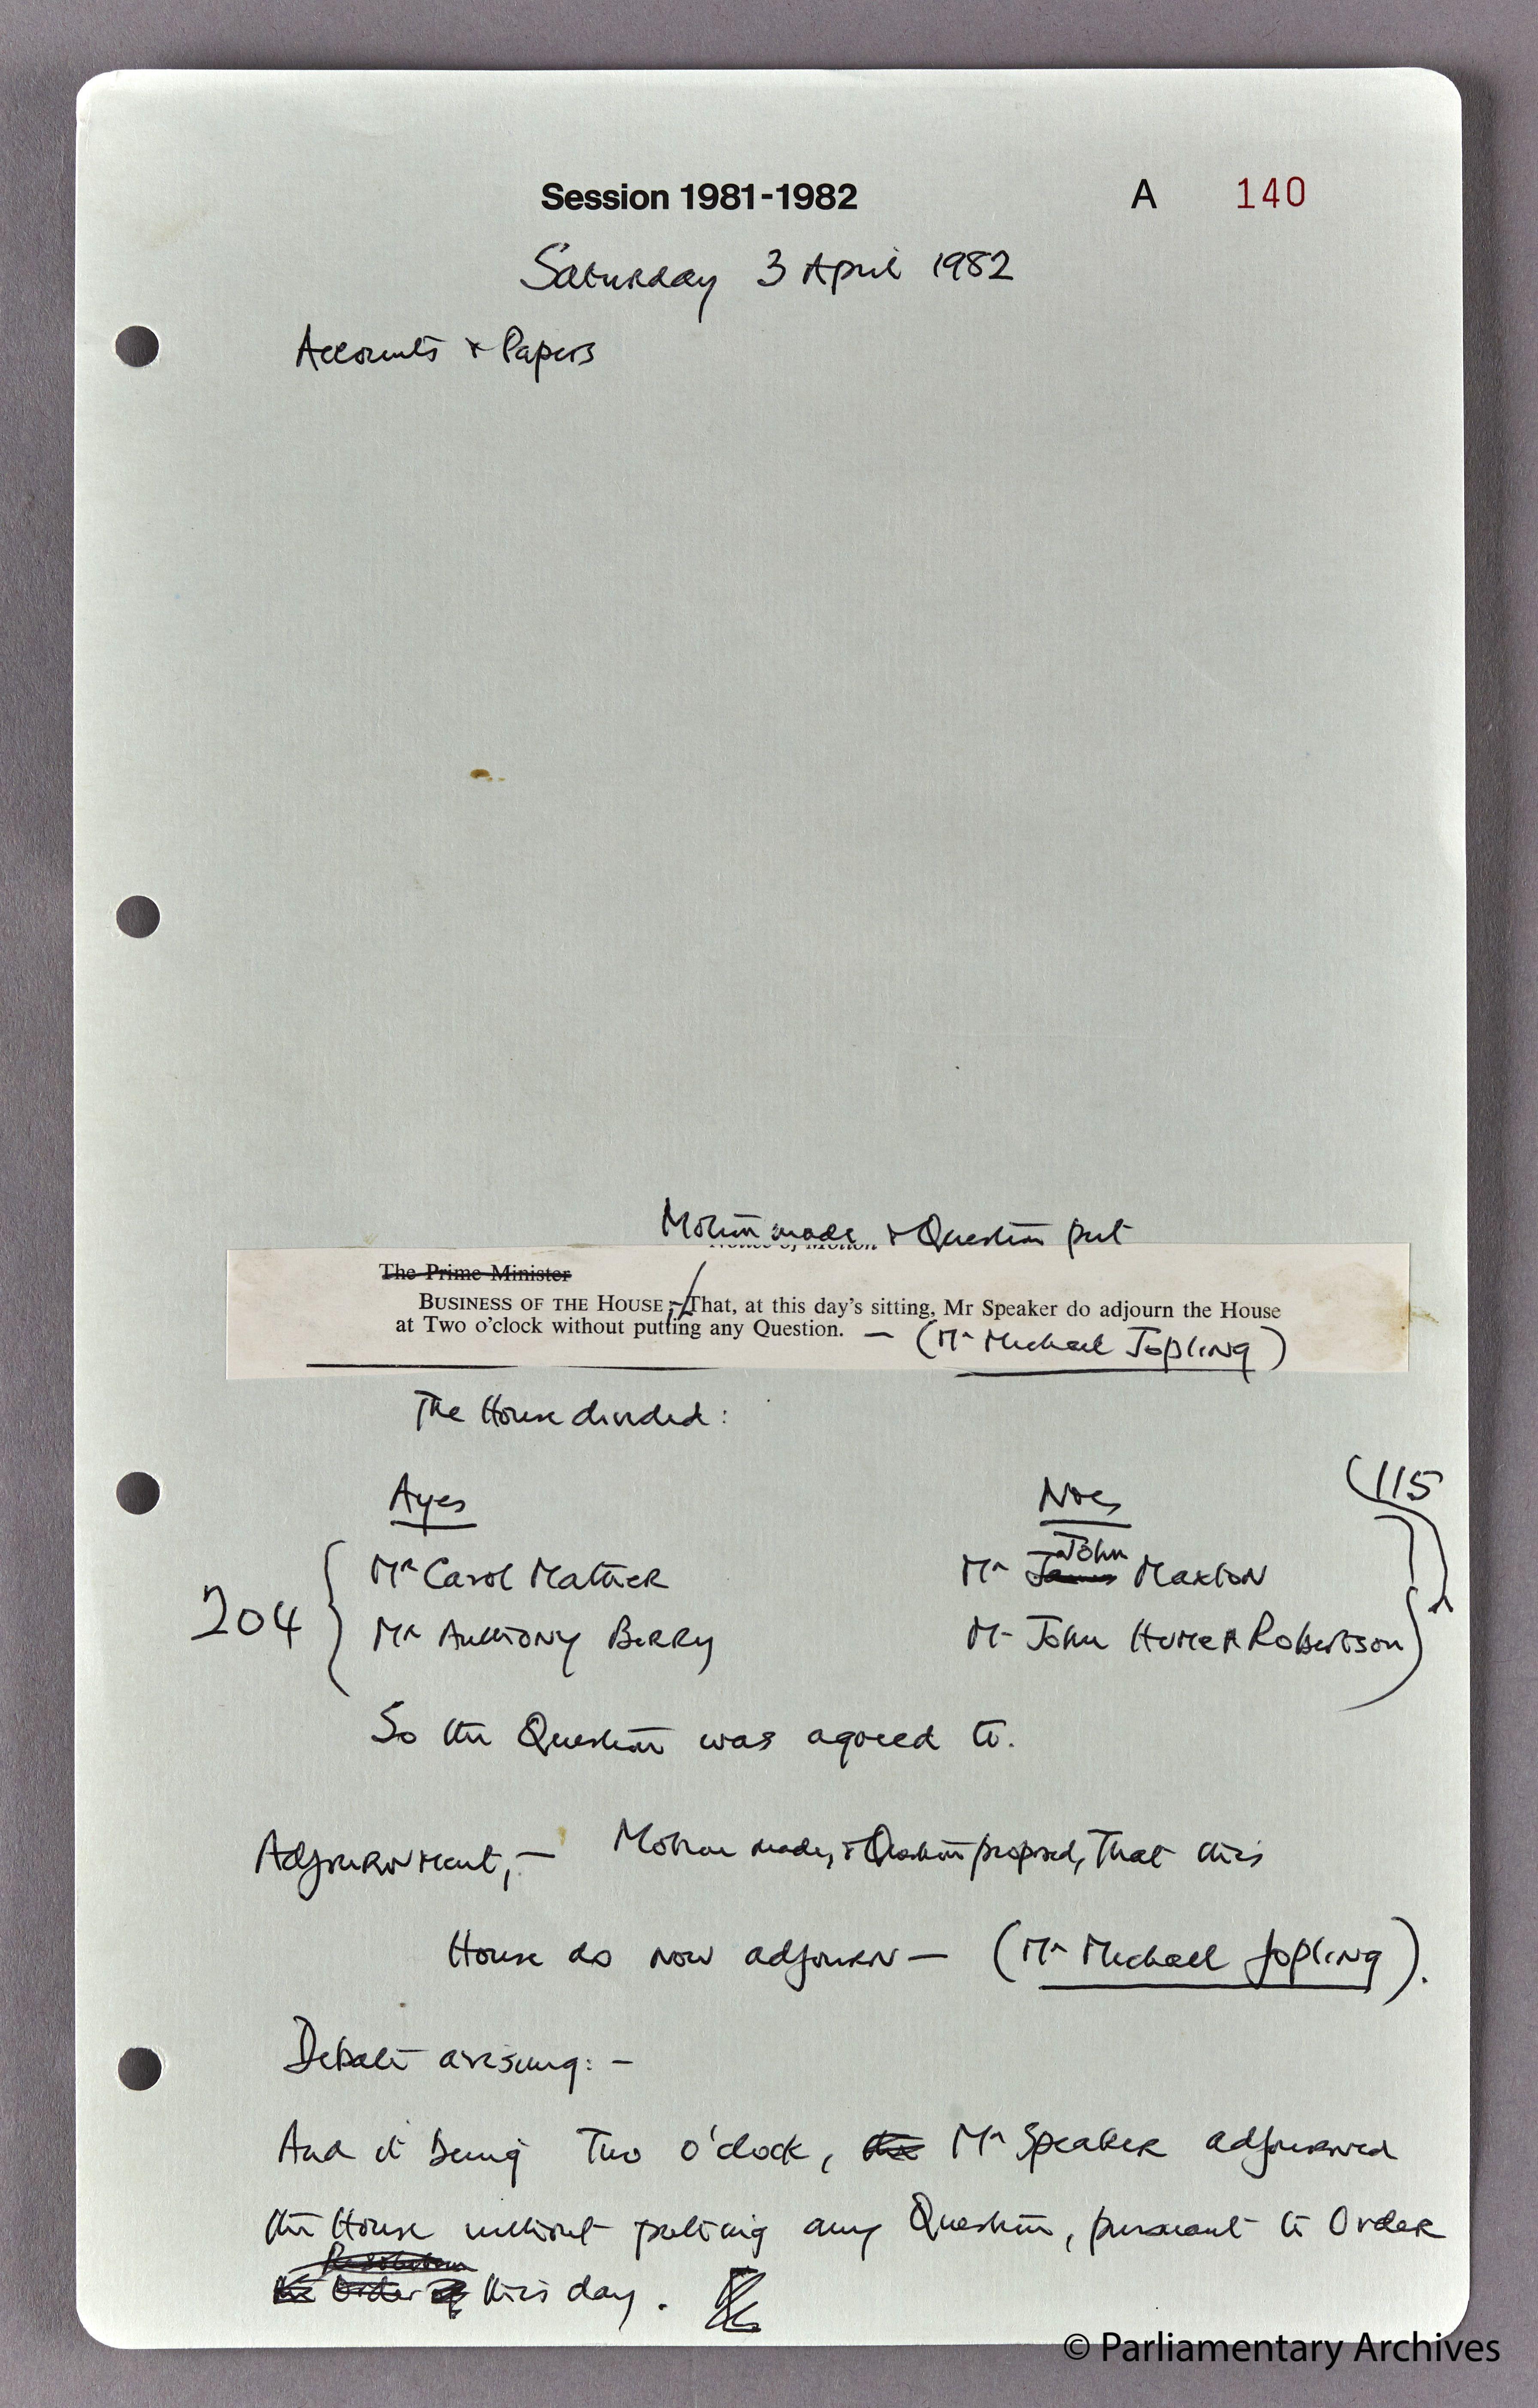 Session 1981-1982 A 140
Saturday 3 April 1982
Accounts & Papers
Motion made & Question put
Notice of Motion
The Prime Minister
BUSINESS OF THE HOUSE,—That, at this day's sitting, Mr Speaker do adjourn the House
at Two o'clock without putting any Question. — (Mr Michael Jopling)
The House divided:
Ayes Noes 115
John
Mr Carol Mather Mr James Maxton
204
Mr Anthony Berry Mr John Home Robertson
So the Question was agreed to.
Adjournment,— Motion made, & Question proposed, That this
House do now adjourn — (Mr Michael Jopling).
Debate arising:—
And it being Two o'clock, the Mr Speaker adjourned
the House without putting any Question, pursuant to Order
Resolution
the Order of this day.
© Parliamentary Archives